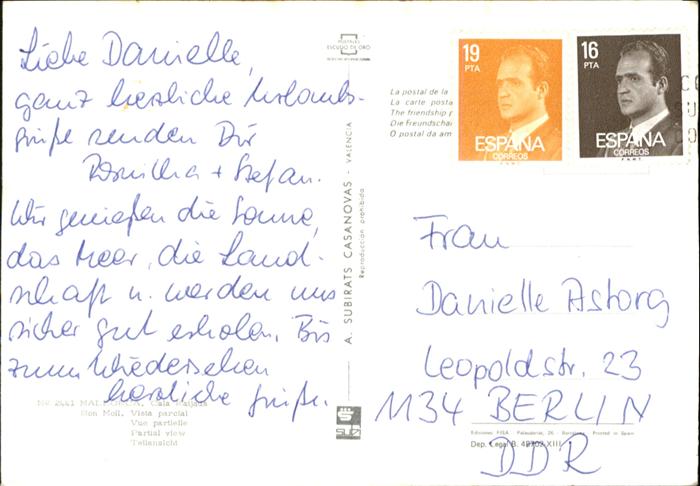 Liebe Danielle,
ganz herzliche Urlaubs-
grüße senden Dir
+ Stefan.
Wir genießen die Sonne,
das Meer, die Land-
schaft u. werden uns
sicher gut erholen. Bis
zum Wiedersehen
herzliche Grüße.
Nº 2441 MALLORCA. Cala
Son Moll. Vista parcial
Vue partielle
Partial view
Teilansicht
POSTALES
ESCUDO DE ORO
A. SUBIRATS CASANOVAS - VALENCIA
Reproducción prohibida
SUBI
La postal de la
La carte posta
The friendship p
Die Freundschaf
O postal da am
19
PTA
ESPAÑA
CORREOS
F.N.M.T.
16
PTA
ESPAÑA
CORREOS
F.N.M.T.
Frau
Danielle Astorg
Leopoldstr. 23
1134 BERLIN
DDR
Ediciones FISA - Palaudarias, 26 - Barcelona - Printed in Spain
Dep. Legal B. 42702-XIII